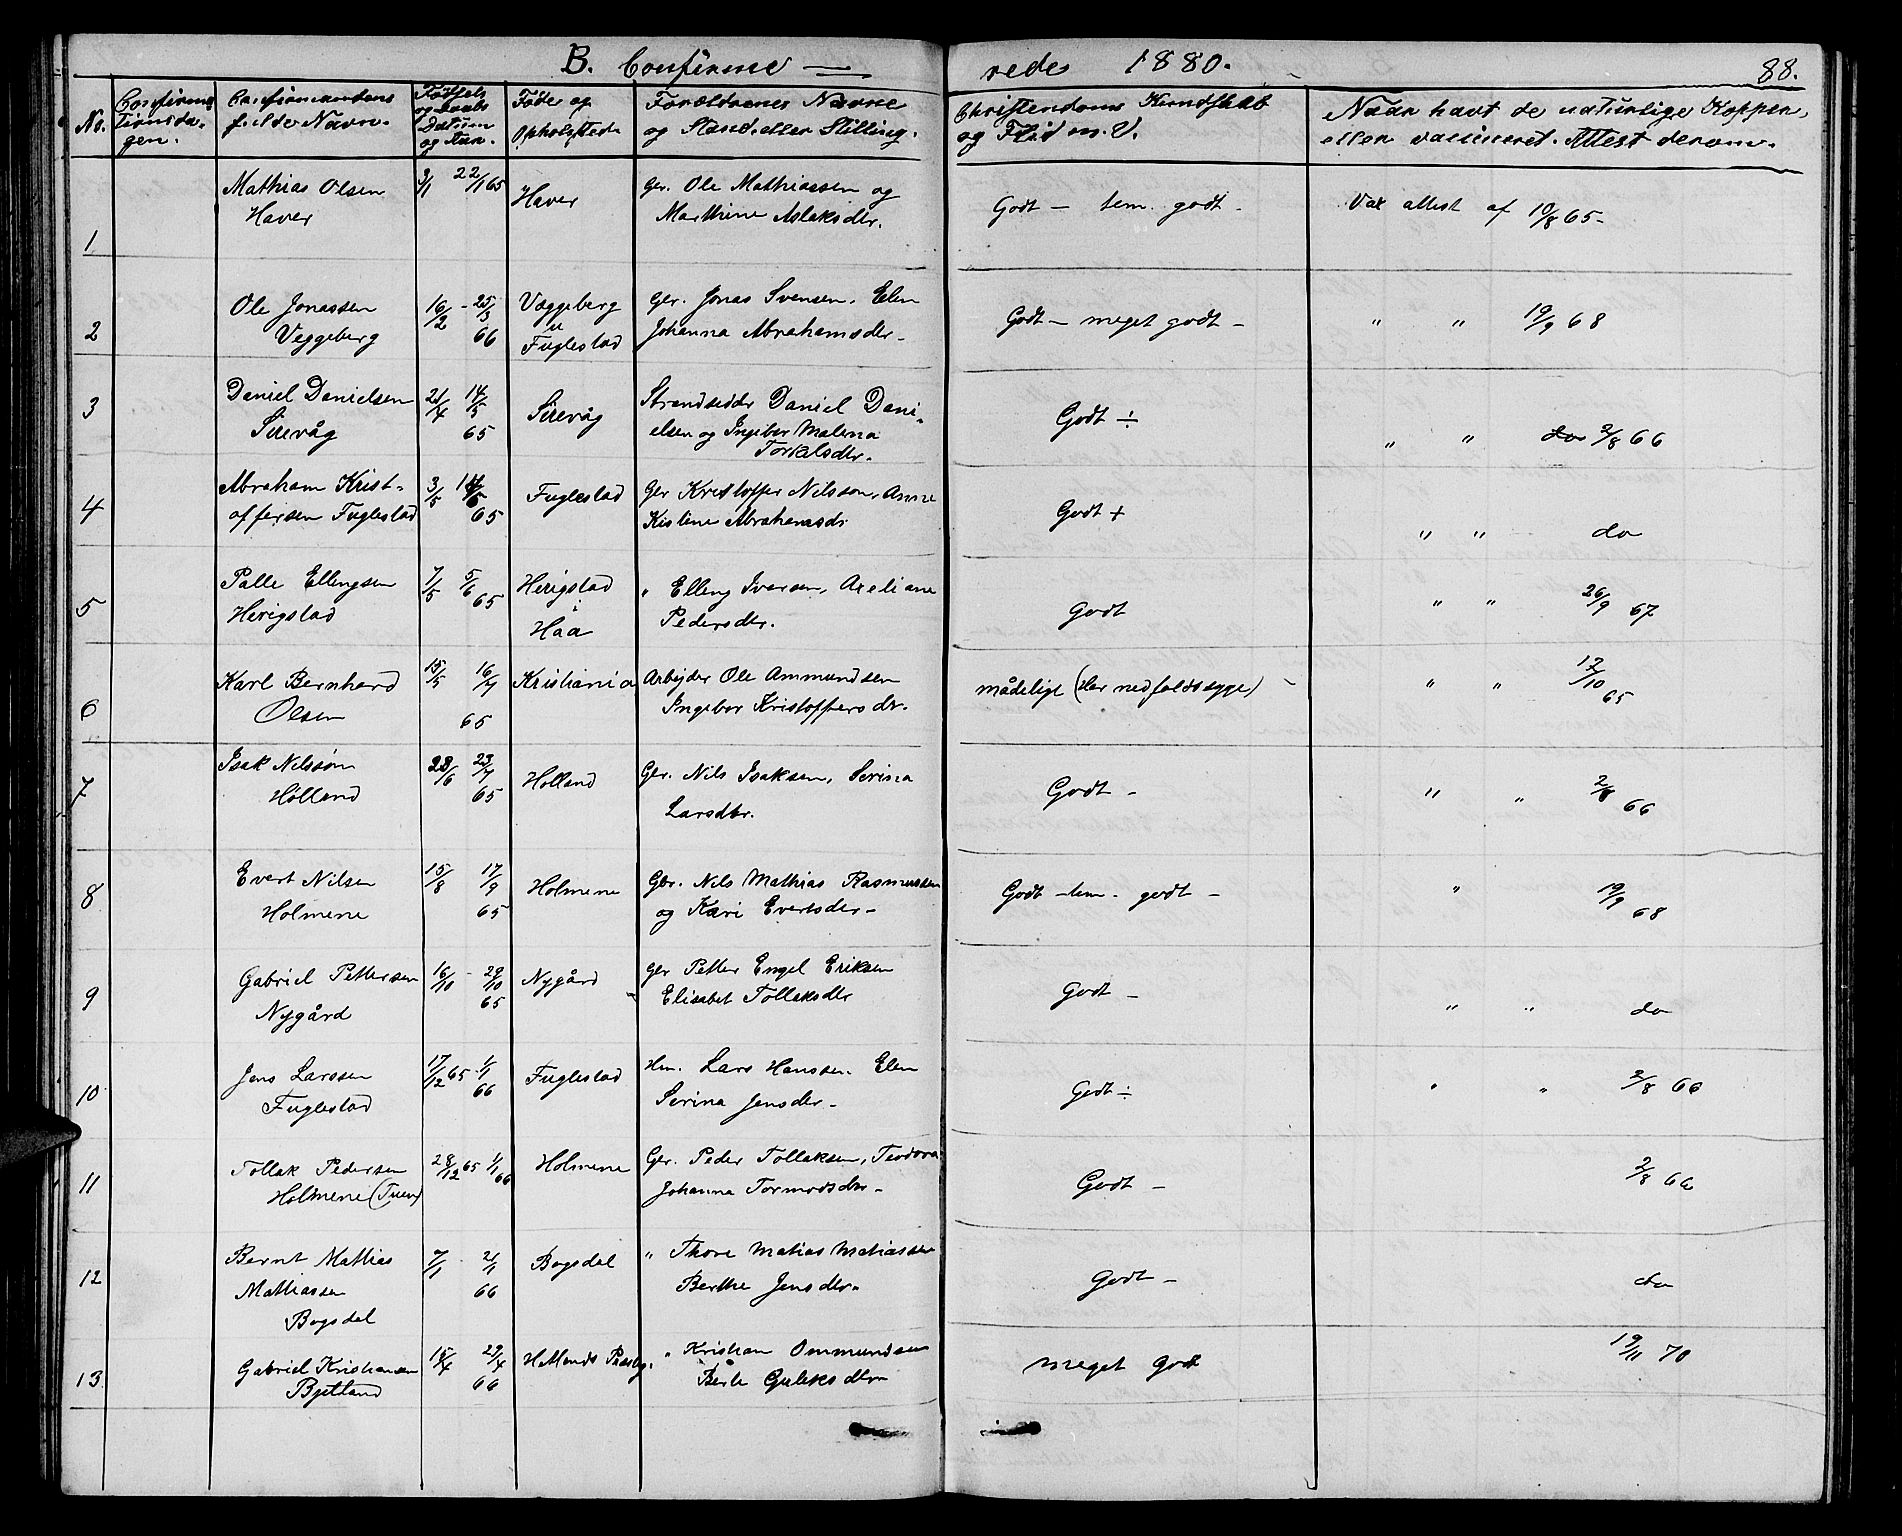 B. Confirme — rede 1880. 88.
No.
Confirma-
tionsda-
gen.
Confirmandens
fulde Navn.
Fødsels
og Daabs
Datum
og Aar.
Føde og
Opholdssted
Forældrenes Navne
og Stand eller Stilling.
Christendoms Kundskab
og Flid m. V.
Naar havt de naturlige Kopper,
eller vaccineret. Attest derom.
1 Mathias Olsen 3/1 22/1 65 Haver Gr. Ole Mathiassen og Godt — tem. godt - Vax attest af 10/8 65-
Haver Marthine Aslaksdtr.
2 Ole Jonassen 16/2 - 25/3 Væggeberg Gbr. Jonas Svensen, Elen Godt — meget godt — " " 19/9 68
Veggeberg 66 Fuglestad Johanna Abrahamsdtr -
3 Daniel Danielsen 21/4 14/5 Sirevåg Strandsidder Daniel Dani- Godt ÷ " " do 2/8 66
Sirevåg 65 elsen og Ingebor Malena
Torkelsdtr.
4 Abraham Krist- 3/5 14/5 Fuglestad Gbr Kristoffer Nilsson, Anne Godt + " " do
offersen Fuglestad 65 Kistine Abrahamsdr
5 Palle Ellingsen 7/5 5/6 65 Herigstad " Elling Iversen, Axeliane Godt " " 26/9 67
Herigstad i Haa Pedersdtr.
6 Karl Bernhard 15/5 16/7 Kristiania Arbejder Ole Ammundsen mådeligt (Har nedfaldssyge) - " " 17/10 65
Olsen 65 Ingebor Kristoffersdtr.
7 Isak Nilsson 28/6 23/7 Holland Gbr. Nils Isaksen, Serina Godt - " " 2/8 66
Hølland 65 Larsdtr.
8 Evert Nilsen 15/8 17/9 Holmene Gbr. Nils Mathias Rasmussen Godt - tem. godt - " 19/9 68
Holmene 65 og Kari Evertsdtr -
9 Gabriel Pettersen 16/10 - 29/10 Nygård Gbr Petter Engel Eriksen Godt - " " do
Nygård 65 Elisabet Tollaksdtr
10 Jens Larssen 17/12 65 1/1 Fuglestad Hm. Lars Hanssen. Elen Godt ÷ " " 2/8 66
Fuglestad 66 Serina Jensdtr -
11 Tollak Pedersen 28/12 65 1/1 66 Holmene Gbr. Peder Tollaksen, Teodora Godt - 2/8 66
Holmene (Tuen) Johanna Tormodsdtr -
12 Bernt Mathias 7/1 - 21/1 Bogsdal " Thore Matias Matiassen Godt - do
Mathiassen 66 Berthe Jensdtr.
Bogsdal
13. Gabriel Kristiansen 15/4 29/4 Hetlands Præstg. " Kristian Ommundsen meget Godt 19/11 70
Bjelland 66 Berte Guleksdtr